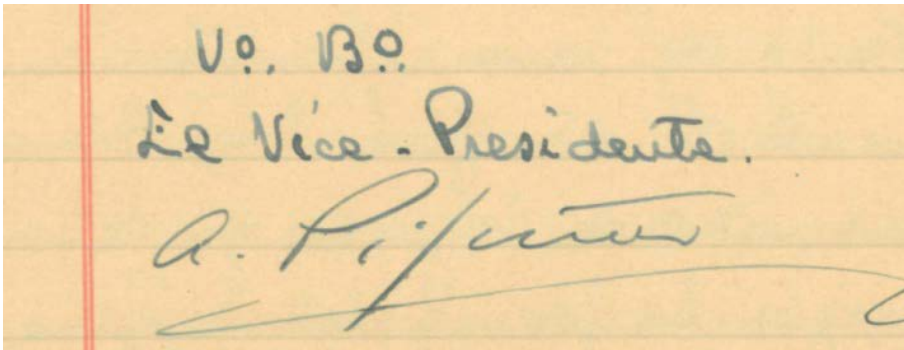 Vº. Bº.
El Vice-Presidente.
A.